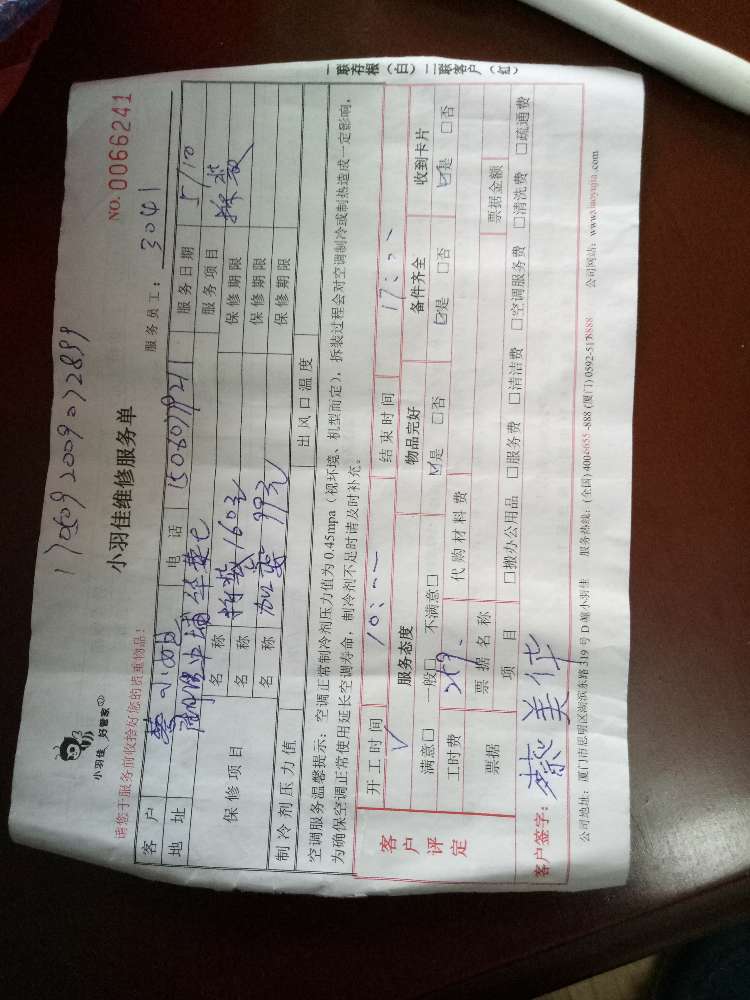 1705092009072899
小羽佳 好管家
小羽佳维修服务单
NO. 0066241
请您于服务前收拾好您的贵重物品!
服务员工: 3041
客户 蔡小姐 电话 服务日期 5/10
地址 服务项目 拆装
保修项目 名称 拆装160元 保修期限
名称 加雾 99元 保修期限
名称 保修期限
制冷剂压力值 出风口温度
空调服务温馨提示:空调正常制冷剂压力值为0.45mpa(视环境、机型而定),拆装过程会对空调制冷或制热造成一定影响,
为确保空调正常使用延长空调寿命,制冷剂不足时请及时补充。
客户评定
开工时间 10:00 结束时间 17:00
服务态度 物品完好 备件齐全 收到卡片
满意□ 一般□ 不满意□ ☑是 □否 ☑是 □否 ☑是 □否
工时费 259. 代购材料费
票据 票据名称 票据金额
项目 □搬办公用品 □服务费 □清洁费 □空调服务费 □清洗费 □疏通费
客户签字: 蔡美华
公司地址:厦门市思明区湖滨东路319号D幢小羽佳 服务热线:(全国)4006655-888(厦门)0592-5178888 公司网站:www.xiaoyujia.com
一联存根(白)二联客户(红)